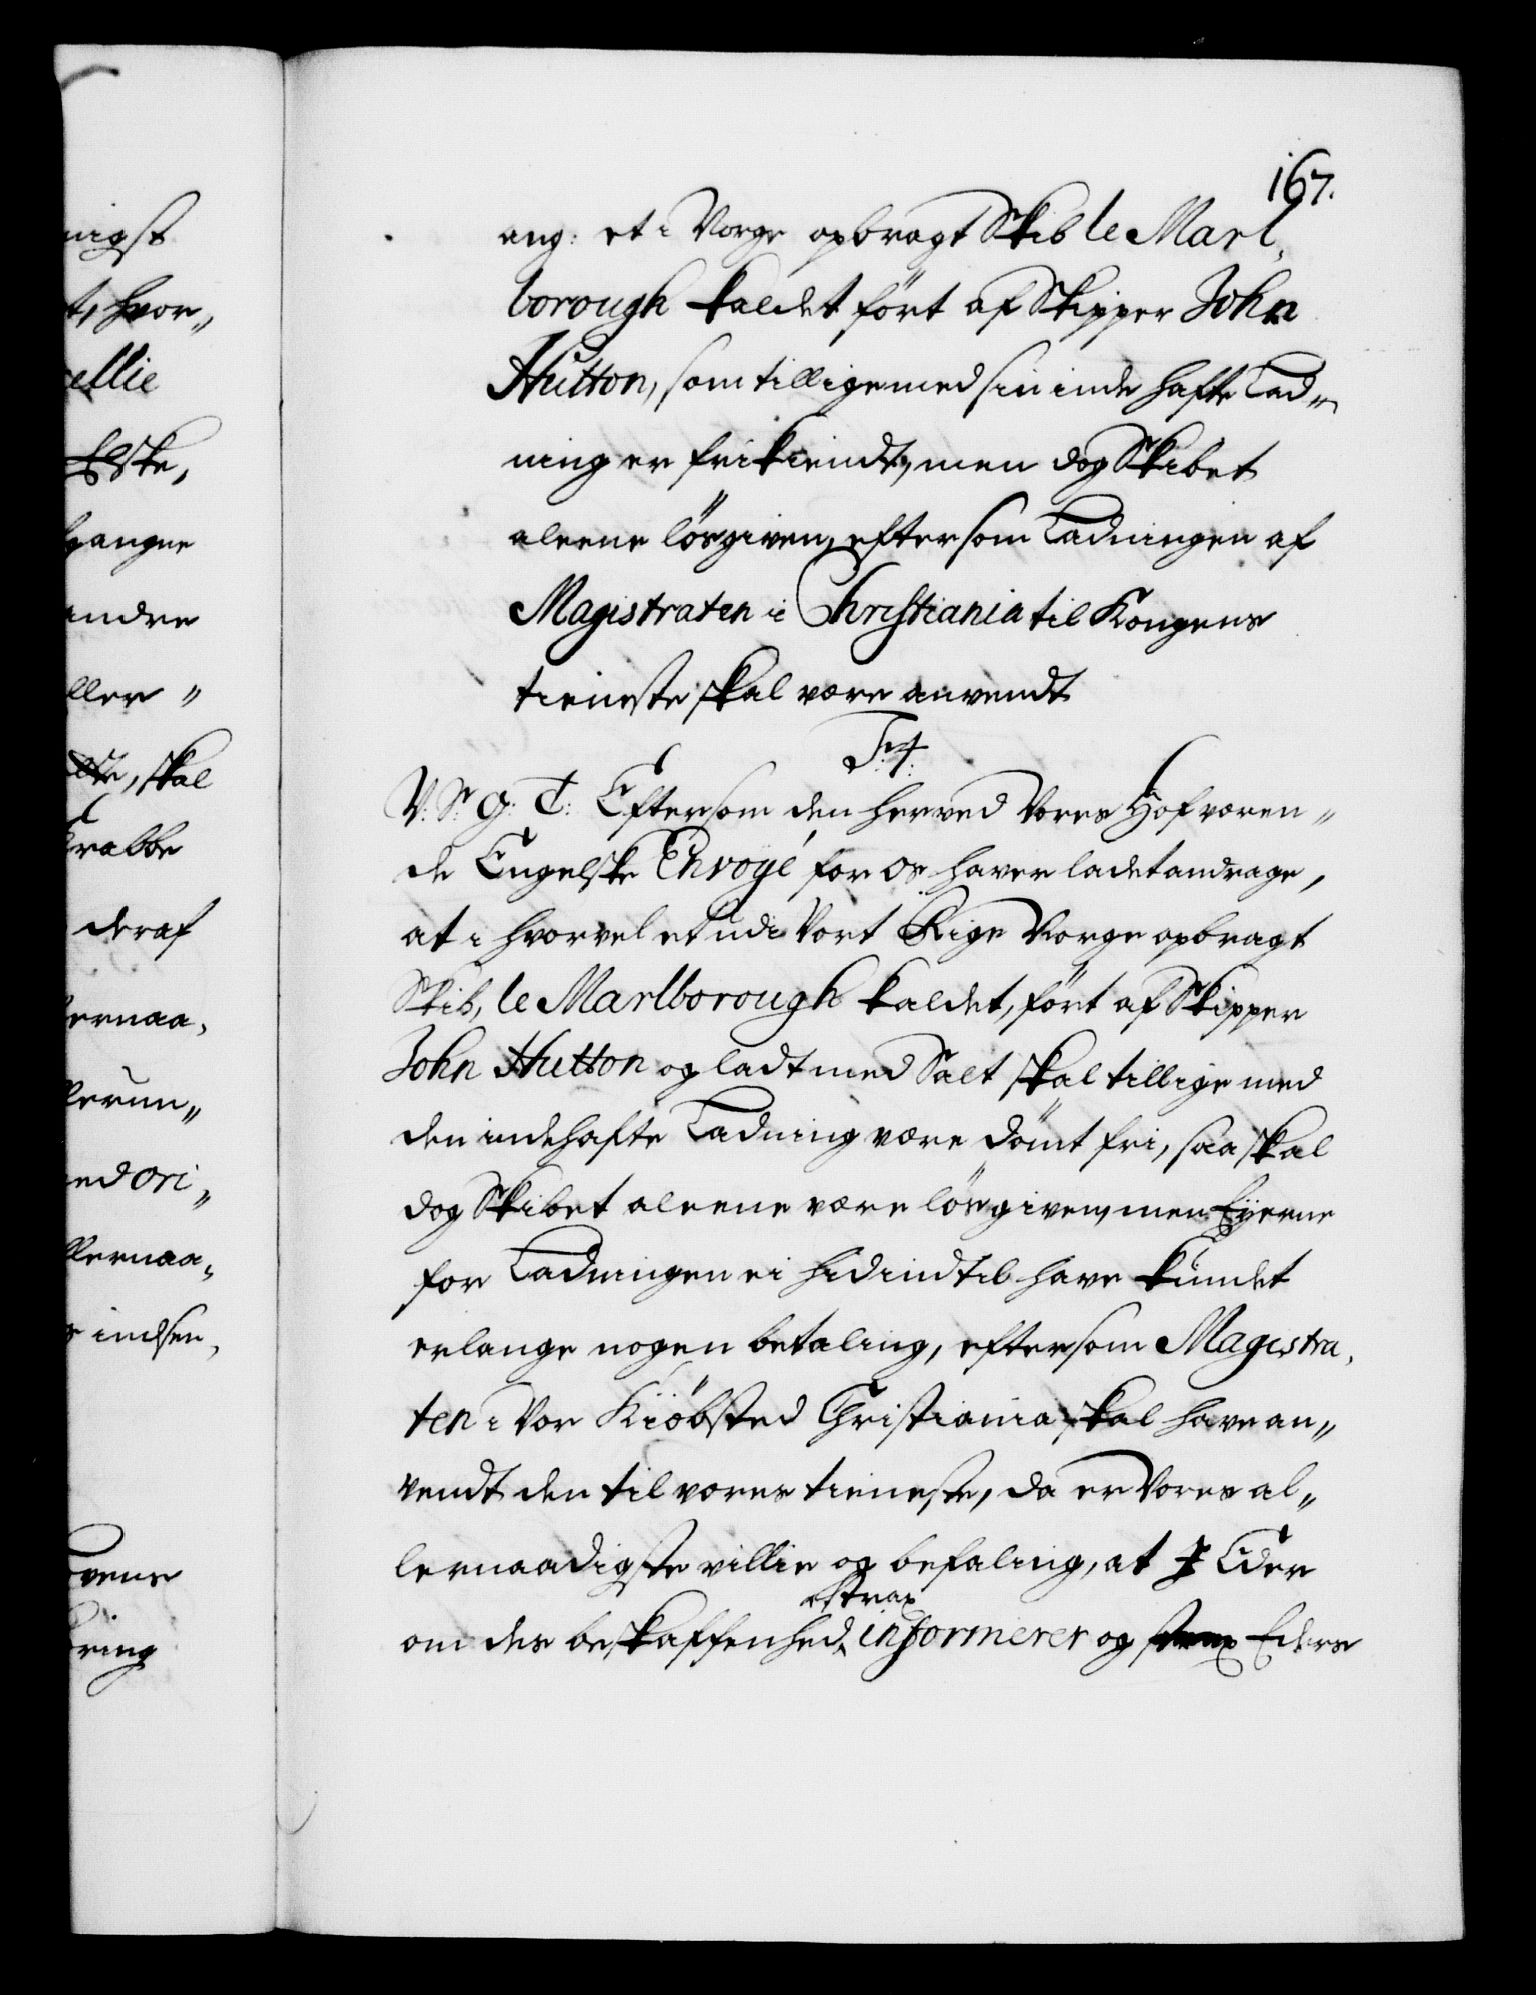 167.
ang: et i Norge opbragt Skib le Marl,
borough kaldet ført af Skipper John
Hutton, som tilligemed sin inde hafte Lad„
ning er frikiendt, men dog Skibet
aleene løsgiven, eftersom Ladningen af
Magistraten i Christiania til Kongens
tieneste skal være anvendt
F: 4.
V: S: G: T: Eftersom den her ved Vores Hof væren„
de Engelske Envoyé for os haver ladet andrage,
at i hvorvel et udi Vort Rige Norge opbragt
Skib, le Marlborough kaldet, ført af Skipper
John Hutton og ladt med Salt skal tillige med
den indehafte Ladning være dømt fri, saa skal
dog Skibet aleene være løsgiven, men Eyerne
for Ladningen ei hidindtil have kundet
erlange nogen betaling, eftersom Magistra,
ten i Vor Kiøbsted Christiania skal have an„
vendt den til vores tieneste, da er Vores al„
lernaadigste villie og befaling, at I Eder
strax
om des beskaffenhed informerer og strax Eders
nigst
t, hvor„
ellie
Elske,
gangne
andre
ller „
skal
Krabbe
deraf
lernaa,
llerun„
ned ori„
llernaa„
s indsen,
ovens
øring